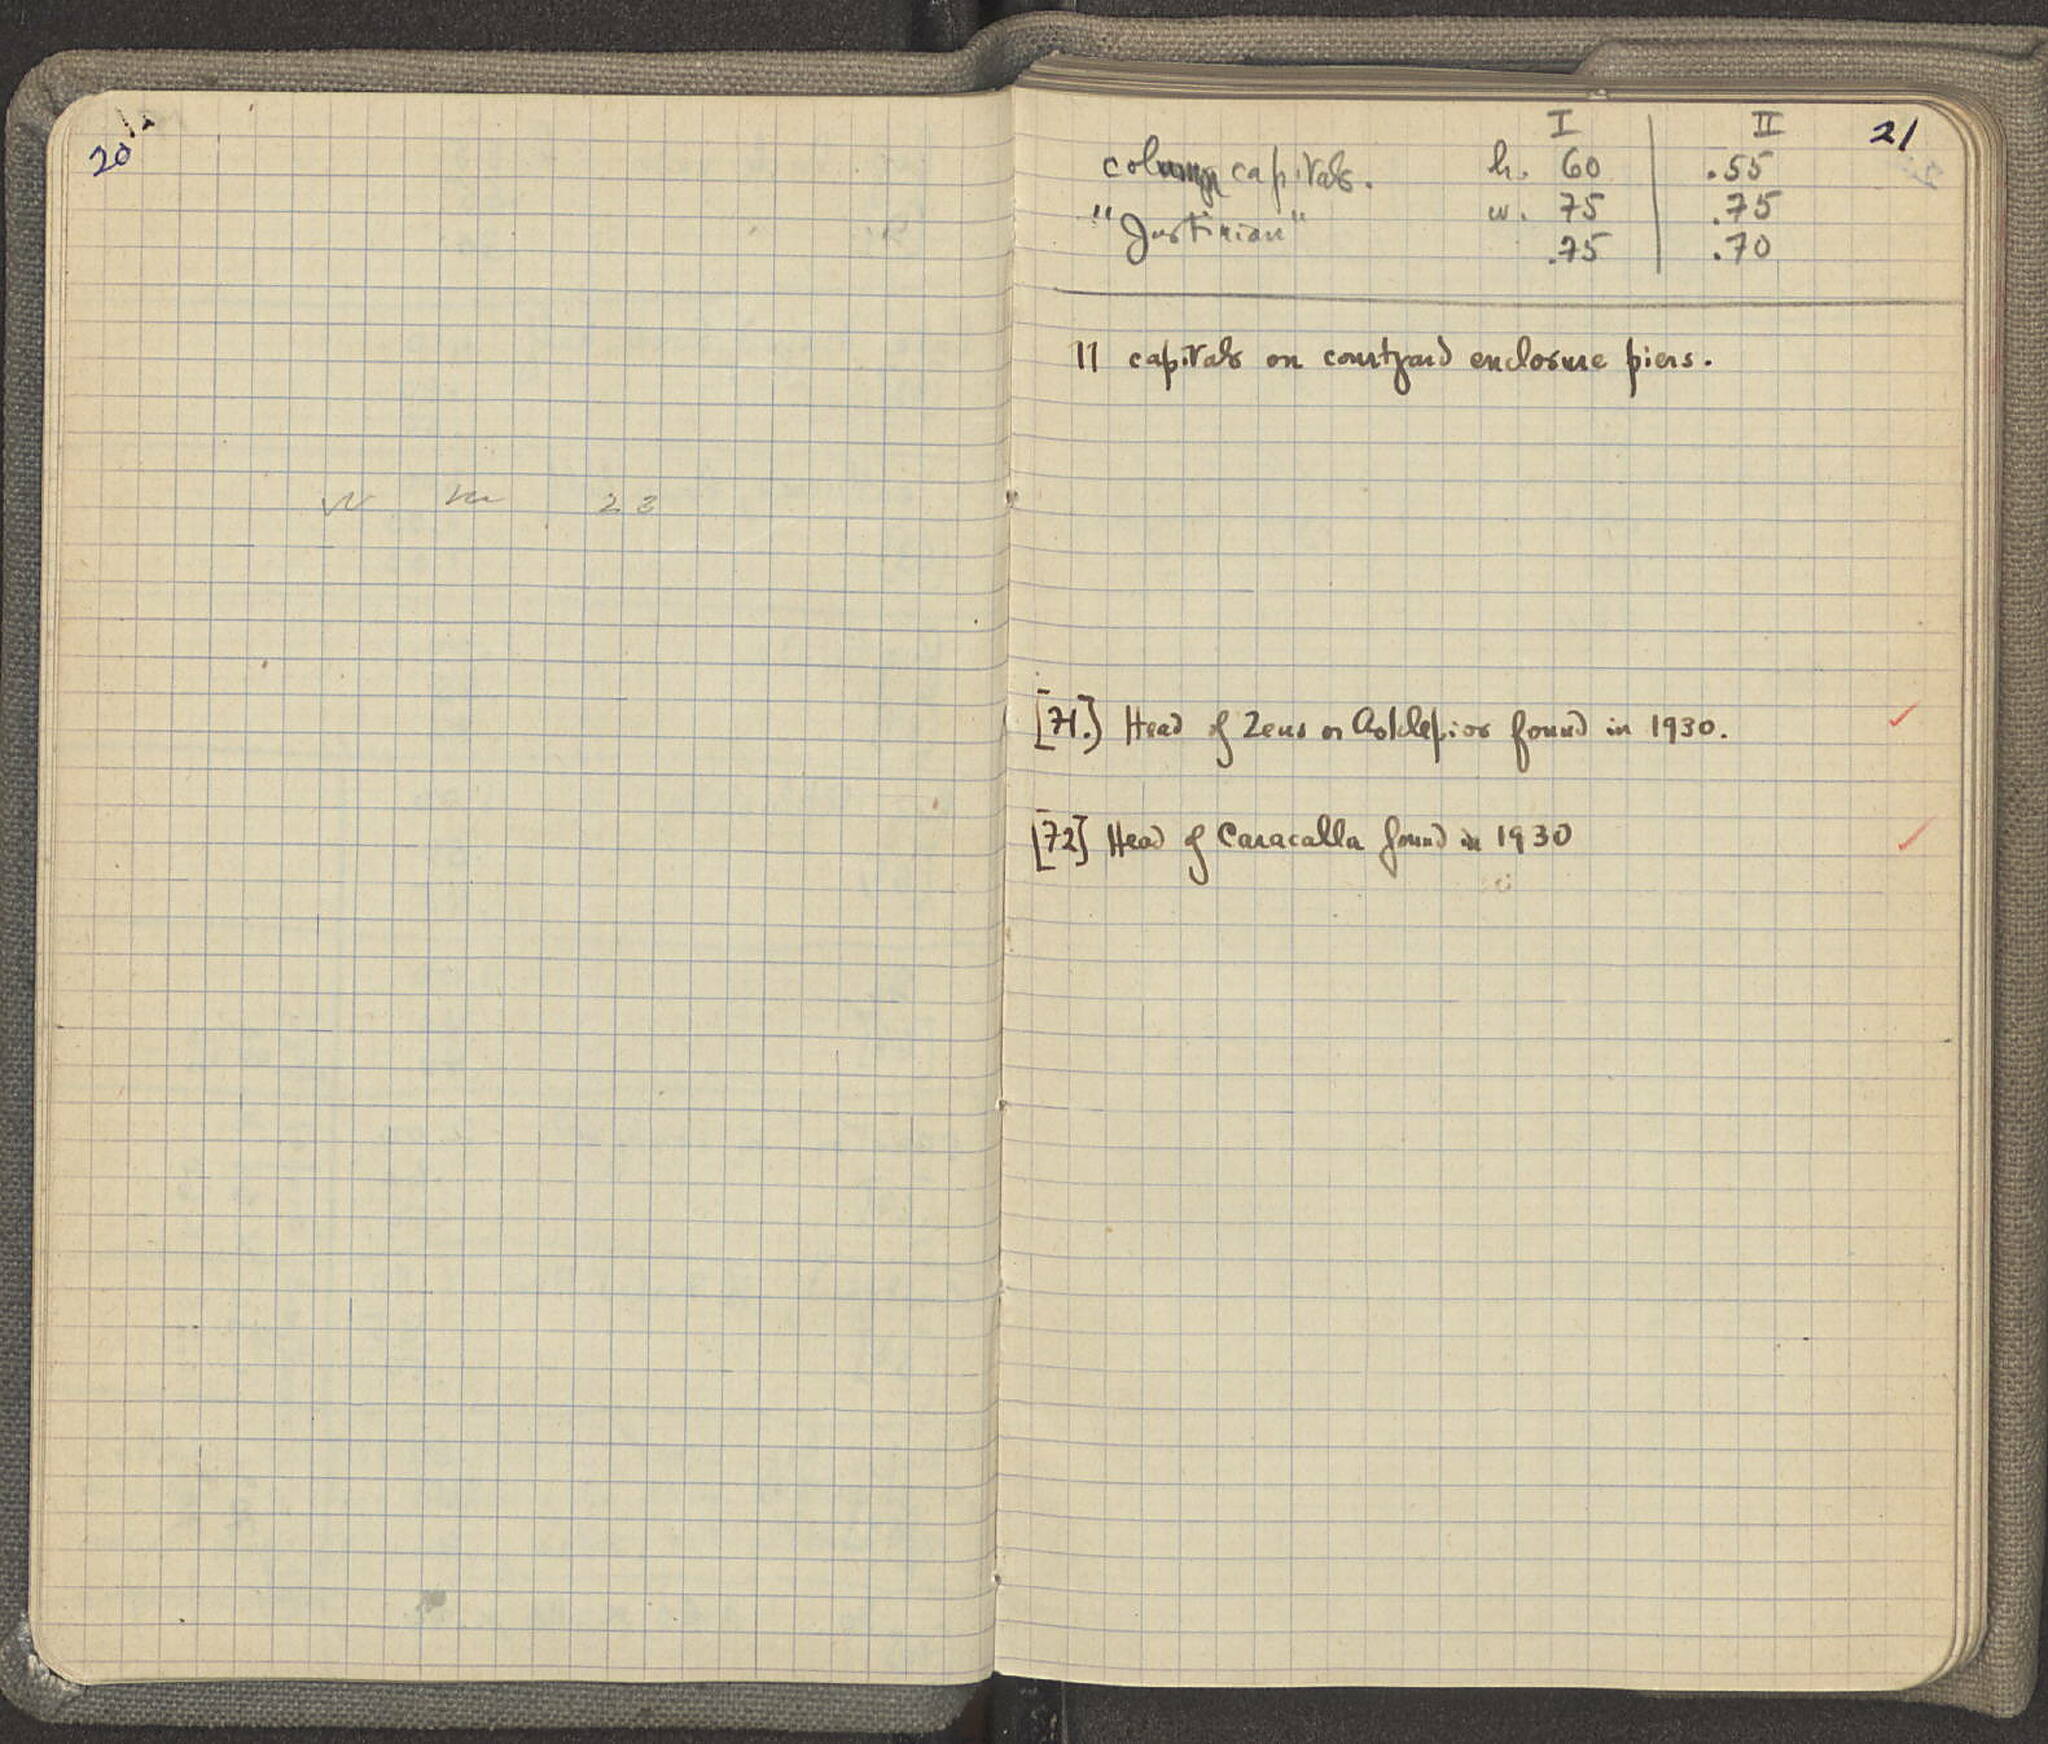 20
23
21
I II
column capitals. h. 60 .55
"Justinian" w. 75 .75
.75 .70
11 capitals on courtyard enclosure piers.
[71.] Head of Zeus or Asklepios found in 1930.
[72] Head of Caracalla found in 1930